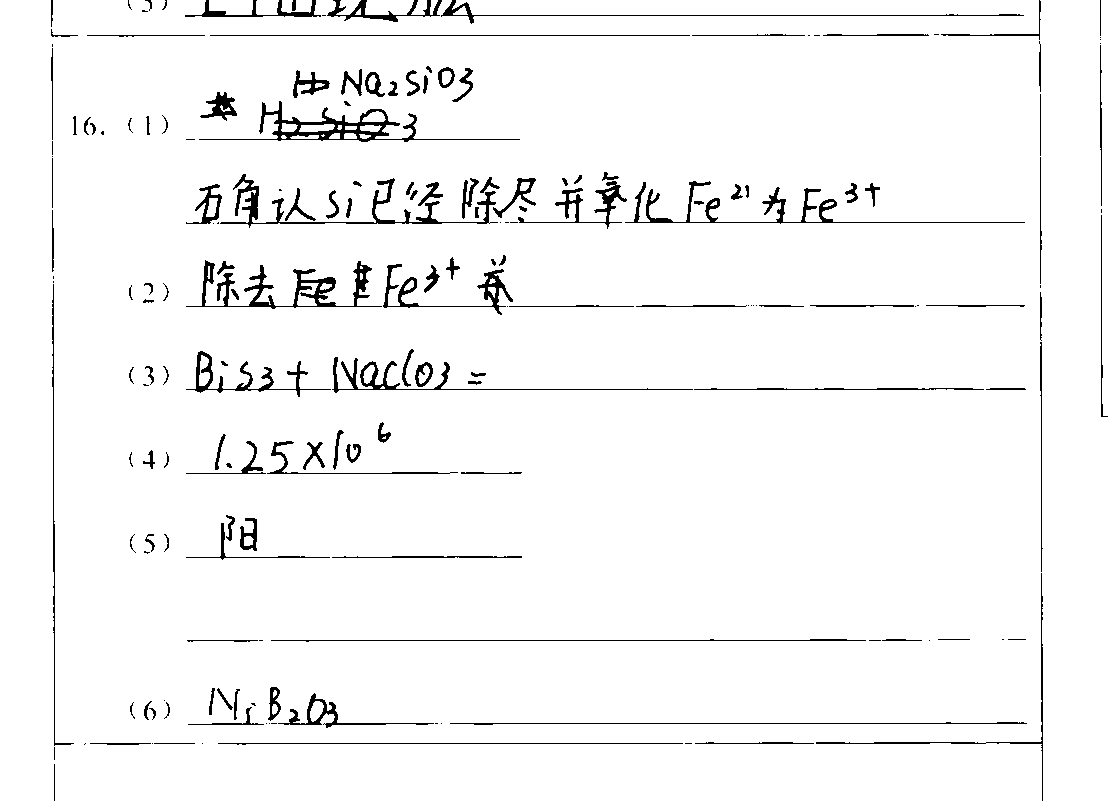 (3)
16. (1) Na₂SiO3
确认Si已经除尽并氧化Fe²⁺为Fe³⁺
(2) 除去Fe³⁺
(3) BiS3+NaClO3=
(4) 1.25×10⁶
(5) 阳
(6) NiB₂O3